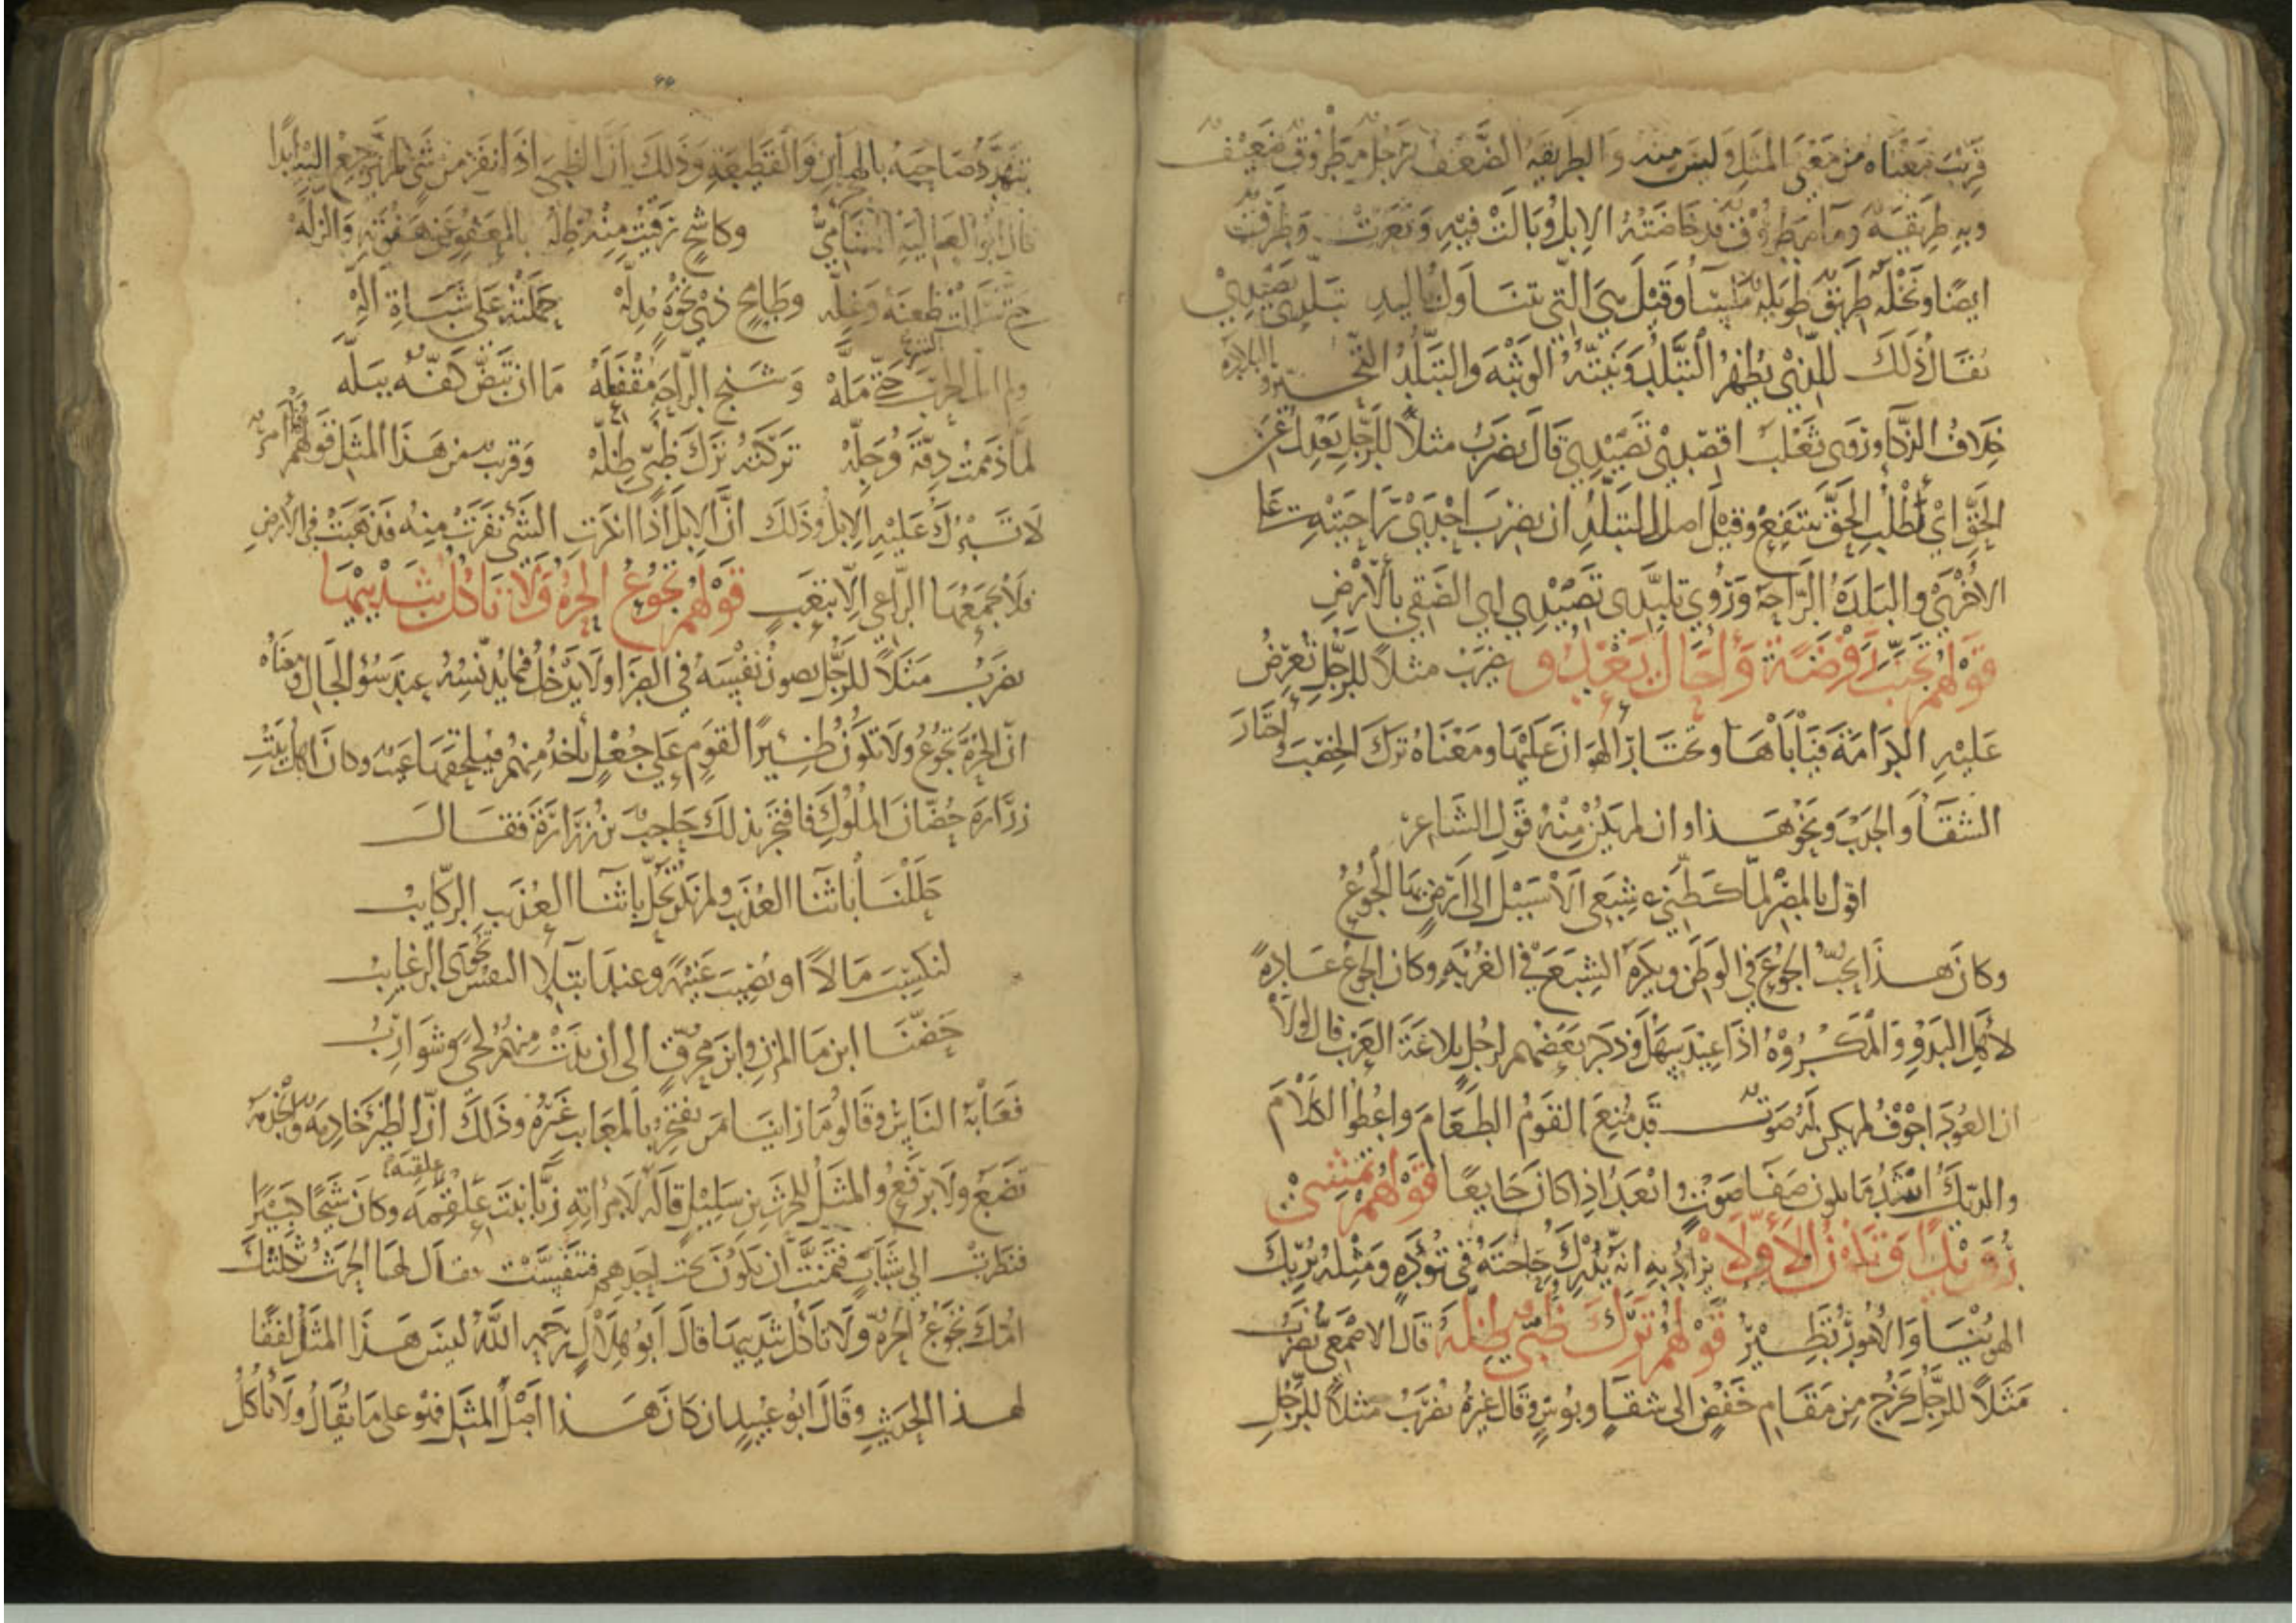 قريب معناه من معنى المثل وليس منه والطريقة الضعف رجل مطروق ضعيف
وبه طريقة وماء مطروق قد خاضته الإبل وبالت فيه وبعرت وطرقت
ايضا ونخلة طريق طويلة ملساء وقيل هي التي تتناول باليد تبلدي تصيدي
يقال ذلك للذي يظهر التبلد ونيته الوثبة والتبلد التحير والبلادة
خلاف الذكاء وروى ثعلب اقصدي تصيدي قال يضرب مثلا للرجل يعدل عن
الحق اي اطلب الحق تنتفع وقيل اصل التبلد ان يضرب احدى راحتيه على
الاخرى والبلدة الراحة وروي تلبدي تصيدي اي الصقي بالارض
قولهم تجنب روضة واحال يعدو يضرب مثلا للرجل تعرض
عليه الكرامة فيأباها ويختار الهوان عليها ومعناه ترك الخصب واختار
الشقاء والجدب ونحو هذا وان لم يكن منه قول الشاعر
اقول بالمصر لما كظني شبعي الا سبيل الى ارض بها الجوع
وكان هذا يحب الجوع في الوطن ويكره الشبع في الغربة وكان الجوع عادة
لاهل البدو والمكروه اذا اعتيد سهل وذكر بعضهم لرجل بلاغة العرب قال لولا
ان العود اجوف لم يكن له صوت قد منع القوم الطعام واعطوا الكلام
والديك اشد ما يكون صفاء صوت وابعد اذا كان جايعا قولهم تمشي
رويدا وتكون الاولا يراد به انه يدرك حاجته في تؤدة ومثله يريك
الهوينا والامور تطير قولهم ترك ظبي ظله قال الاصمعي يضرب
مثلا للرجل يخرج من مقام خفض الى شقاء وبوس وقال غيره يضرب مثلا للرجل
يتهدد صاحبه بالهجران والقطيعة وذلك ان الظبي اذا نفر من شيء لم يرجع اليه ابدا
قال ابو العالية الشامي وكاشح رقيت منه صله بالعفو عن هفوته والزله
حتى سللت ظعنه وغله وطامح ذي نخوة مدله حملته على شباة اله
ولم امل الحرب حتى مله وشنج الراحة مقفعله ما ان تبض كفه ببله
لما ذممت دقه وجله تركته ترك ظبي ظله وقريب من هذا المثل قولهم
لا تبرك عليه الابل وذلك ان الابل اذا انكرت الشيء نفرت منه فذهبت في الارض
فلا يجمعها الراعي الا بتعب قولهم تجوع الحرة ولا تاكل بثدييها
يضرب مثلا للرجل يصون نفسه في الضراء ولا يدخل فيما يدنسه عند سوء الحال ومعناه
ان الحرة تجوع ولا تكون ظئيرا لقوم على جعل تأخذ منهم فيلحقها عيب وكان اهل بيت
زرارة حضان الملوك فافتخر بذلك حاجب بن زرارة فقال
حللنا باثناء العذيب ولم تكن تحل باثناء العذيب الركايب
لنكسب مالا او نصيب غنيمة وعند ابتلاء النفس تحوى الرغايب
حضنا ابن ماء المزن وابن محرق الى ان بدت منهم لحى وشوارب
فعابه الناس وقالوا ما راينا من يفتخر بالمعايب غيره وذلك ان الظئر خادمة والخدمة
تضع ولا ترفع والمثل للحرث بن سليل قاله لامراته زبا بنت علقمة وكان شيخا كبيرا
فنظرت الى شباب فتمنت ان يكون تحت احدهم فتنفست فقال لها الحرث ثكلتك
امك تجوع الحرة ولا تاكل ثدييها قال ابو هلال رحمه الله ليس هذا المثل لفقا
لهذا الحديث وقال ابو عبيد ان كان هذا اصل المثل فهو على ما يقال ولا تاكل